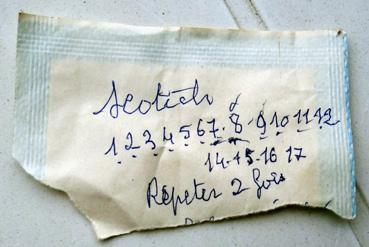 Scotch
1 2 3 4 5 6 7 · 8 - 9 10 11 12
14 - 15 - 16 17
Répeter 2 fois